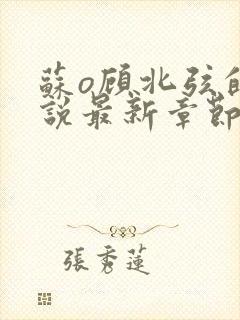 蘇o顧北弦的
說最新章節
張秀蓮